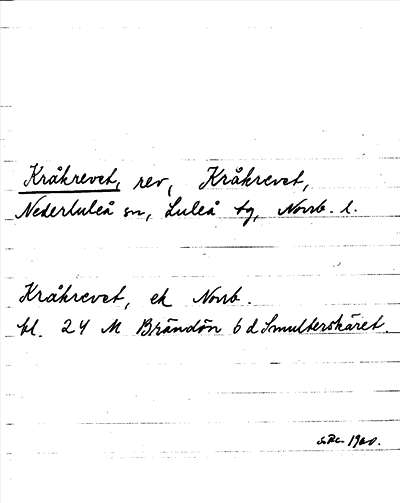 Kråkrevet, rev, Kråkrevet,
Nederluleå sn, Luleå tg, Norrb. l.
Kråkrevet, ek Norrb.
bl. 24 M Brändön 6 d Smulterskäret.
1960.